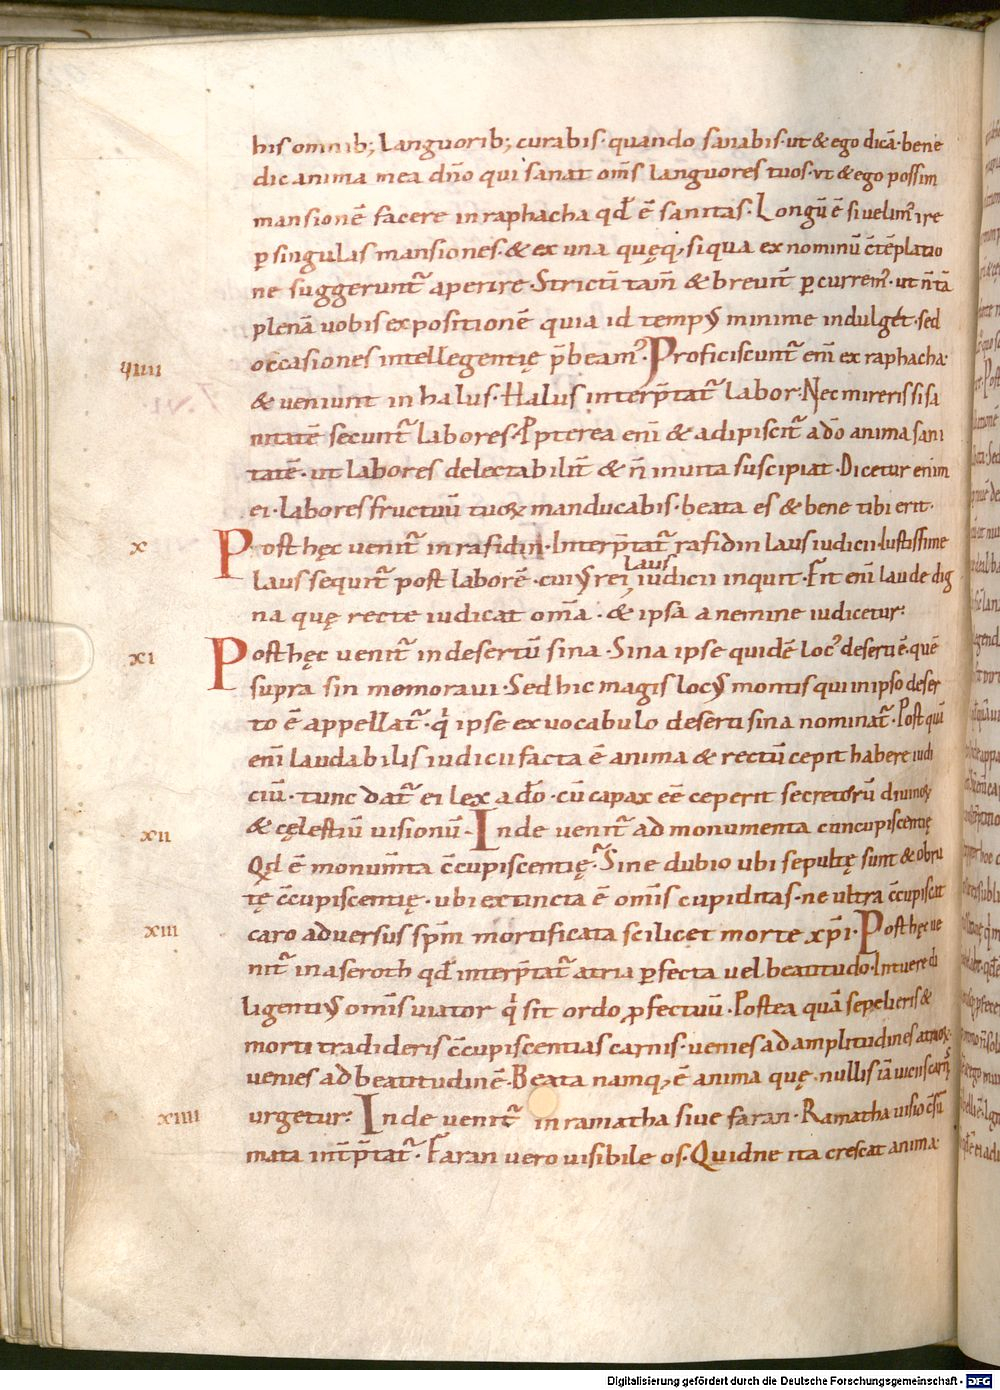 his omnib; languorib; curabis· quando sanabis· ut & ego dicā· bene
dic anima mea dn̄o qui sanat om̄s languores tuos· ut & ego possim
mansionē facere in raphacha qd̄ ē sanitas· Longū ē si uelim᾽ ire
ꝑ singulas mansiones· & ex una quęq, siqua ex nominū c̄tēplatio
ne suggerunt᷑ aperire· Strictī tam̄ & breuit̄ ꝑcurrem᾽· ut n̄ tā
plenā uobis expositionē quia id temp᾽ minime indulgēt· sed
occasiones intellegentię p̄beam᾽· Proficiscunt᷑ eni᷑ ex raphacha·
viiii
& ueniunt in halus· Halus interp̄tat᷑ labor· Nec mireris si sa
nitatē secunt᷑ labores· Ppterea eni᷑ & adipiscit᷑ a dō anima sani
tatē· ut labores delectabilit̄ & n̄ inuita suscipiat· Dicetur enim
ei· labores fructuū tuoꝝ manducabis· beata es & bene tibi erit·
x
Post hęc uenit᷑ in rafidin· Interp̄tat᷑ rafidin laus iudicii· Iustissime
laus sequit᷑ post laborē· cui᾽ rei laus iudicii inquit· Fit eni᷑ laude dig
na quę recte iudicat om̄a· & ipsa a nemine iudicetur:
xi
Post hęc uenit᷑ in desertū sina· Sina ipse quidē loc᾽ deserti ē· quē
supra sin memoraui· Sed hic magis loc᾽ montis qui in ipso deser
to ē appellat᷑· q̇ ipse ex uocabulo deserti sina nominat᷑· Post quā
eni᷑ laudabilis iudicii facta ē anima & rectū cepit habere iudi
ciū· tunc dat᷑ ei lex a dō· cū capax eē ceperit secretorū diuinoꝝ
& cęlestiū uisionū· Inde uenit᷑ ad monumenta concupiscentię
xii
Qd̄ ē monum̄ta c̄cupiscentię· Sine dubio ubi sepultę sunt & obru
tę c̄cupiscentię· ubi extincta ē om̄is cupiditas· ne ultra c̄cupiscat
caro aduersus sp̄m mortificata scilicet morte xp̄i· Post hęc ue
xiii
nit᷑ in aseroth qd̄ interp̄tat᷑ atria ꝑfecta uel beatitudo· Intuere di
ligenti᾽ om̄is uiator q̇ sit ordo ꝓfectuū· Postea quā sepelieris &
morti tradideris c̄cupiscentias carnis· uenies ad amplitudines atrioꝝ·
uenies ad beatitudinē· Beata namq, ē anima quę nullis iā uiciis carnis
urgetur: Inde uenit᷑ in ramatha siue faran· Ramatha uisio c̄sū
xiiii
mata int̄p̄tat᷑· Faran uero uisibile os· Quidne ita crescat anima
Digitalisierung gefördert durch die Deutsche Forschungsgemeinschaft - DFG